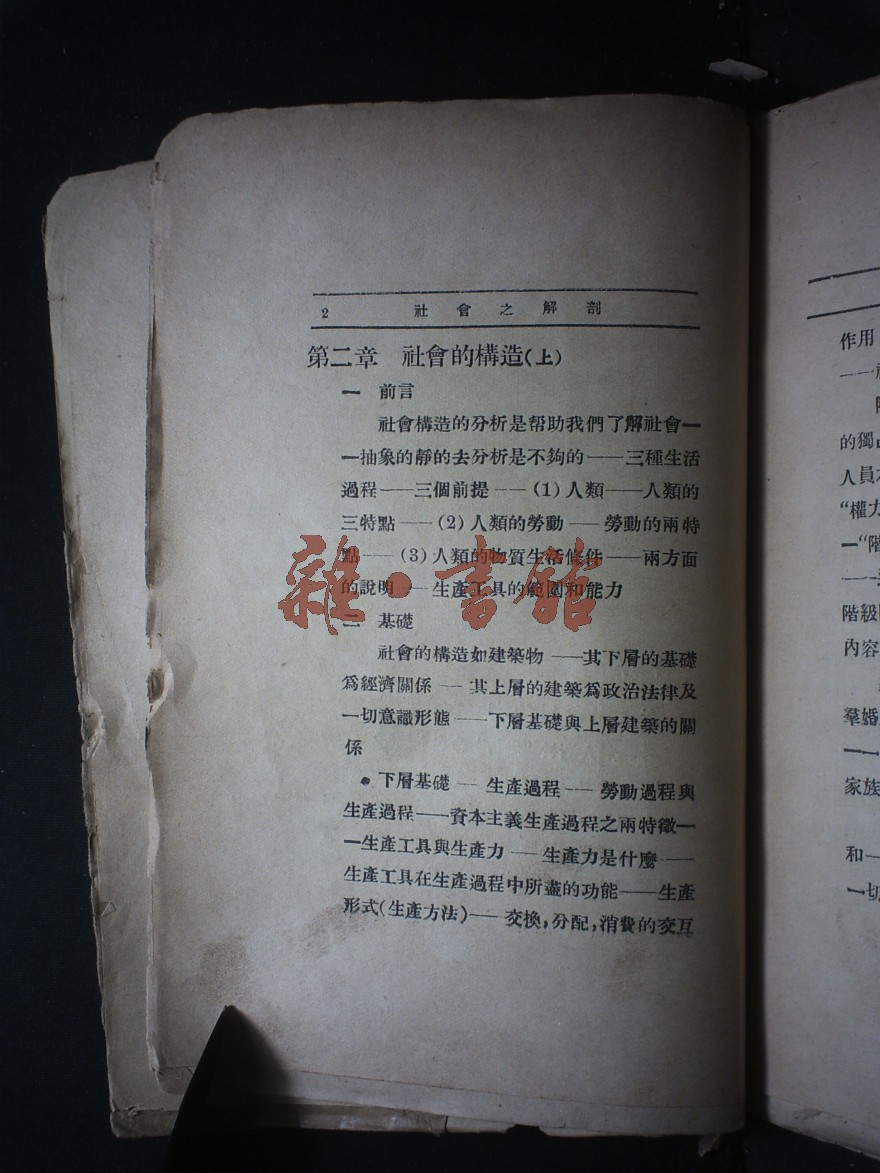 2 社會之解剖
第二章 社會的構造(上)
一 前言
社會構造的分析是帮助我們了解社會—
—抽象的靜的去分析是不夠的——三種生活
過程——三個前提——(1)人類——人類的
三特點——(2)人類的勞動——勞動的兩特
點——(3)人類的物質生活條件——兩方面
的說明——生產工具的範圍和能力
二 基礎
社會的構造如建築物——其下層的基礎
爲經濟關係——其上層的建築爲政治法律及
一切意識形態——下層基礎與上層建築的關
係
•下層基礎——生產過程——勞動過程與
生產過程——資本主義生產過程之兩特徵—
—生產工具與生產力——生產力是什麼——
生產工具在生產過程中所盡的功能——生產
形式(生產方法)——交換,分配,消費的交互
雜·書館
作用
——
的獨
人員
“權力
—“階
——
階級
內容
羣婚
——
家族
和—
一切